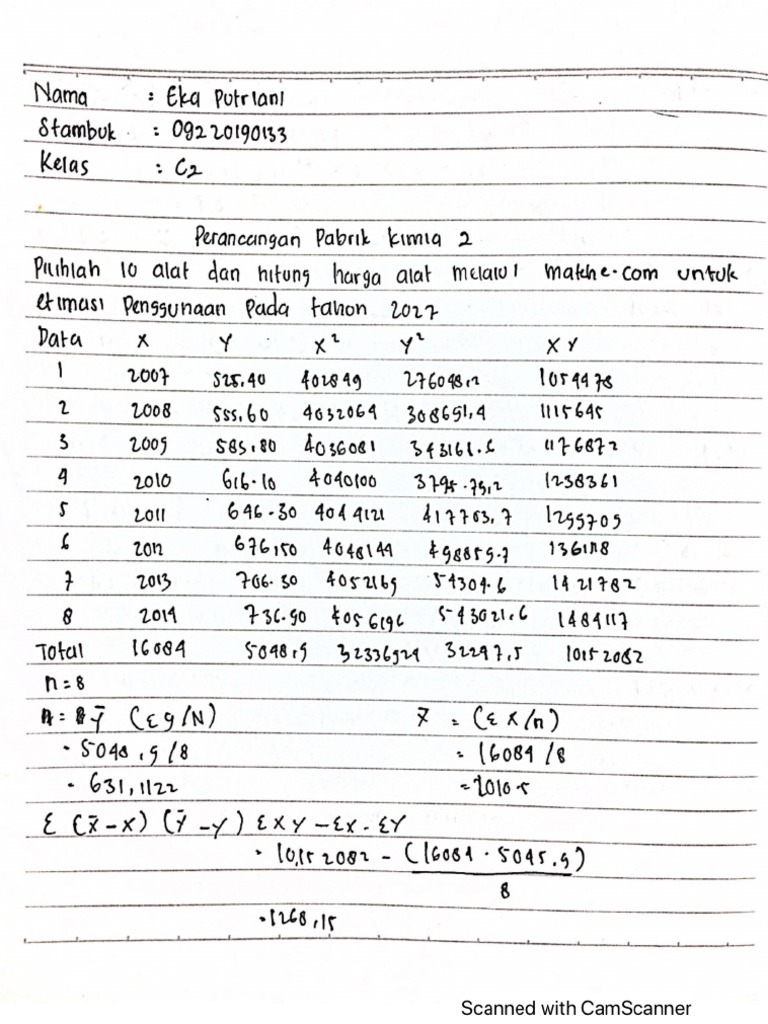 Nama : Eka Putriani
Stambuk : 09220190133
Kelas : C2
Perancangan Pabrik Kimia 2
Pilihlah 10 alat dan hitung harga alat melalui matche.com untuk
etimasi Penggunaan Pada tahun 2027
Data X Y X² Y² XY
1 2007 525.40 402849 276048,2 1054478
2 2008 555,60 4032064 308651,4 1115645
3 2009 585,80 4036081 343161.6 1176872
4 2010 616.10 4040100 3795.79,2 1238361
5 2011 646.30 4044121 417703,7 1299709
6 2012 676,50 4048144 498859.7 1361118
7 2013 706.30 4052169 54304.6 1421782
8 2014 736.90 4056196 543021,6 1484117
Total 16084 5048,9 32336924 32297,5 10152082
n = 8
Ȳ (Σy/N) = (Σx/n)
= 5048,9/8 = 16084/8
= 631,1122 = 2010 5
Σ (x̄-x) (ȳ-y) ΣXY - Σx. ΣY
= 10,152082 - (16084 . 5045.9)
8
= 1268,15
Scanned with CamScanner